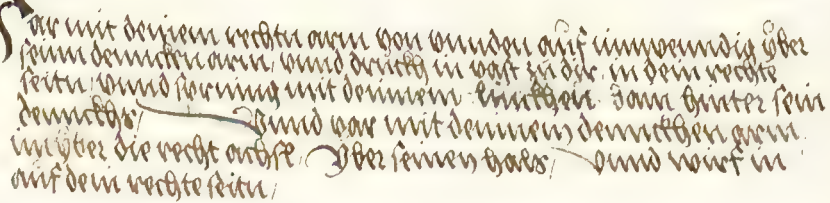 Far mit deinem rechtn arm von vnnden auf innwenndig yber
seinn dennckenn arm, vnnd druckh in vast zu dir, in dein rechte
seitn, vnnd spring mit deinnem linnckhen dain hinter sein
dennckhn, vnnd var mit deinnem dennckhen arm
im yber die recht achsl, yber seinen hals, vnnd wirf in
auf dein rechte seitn,